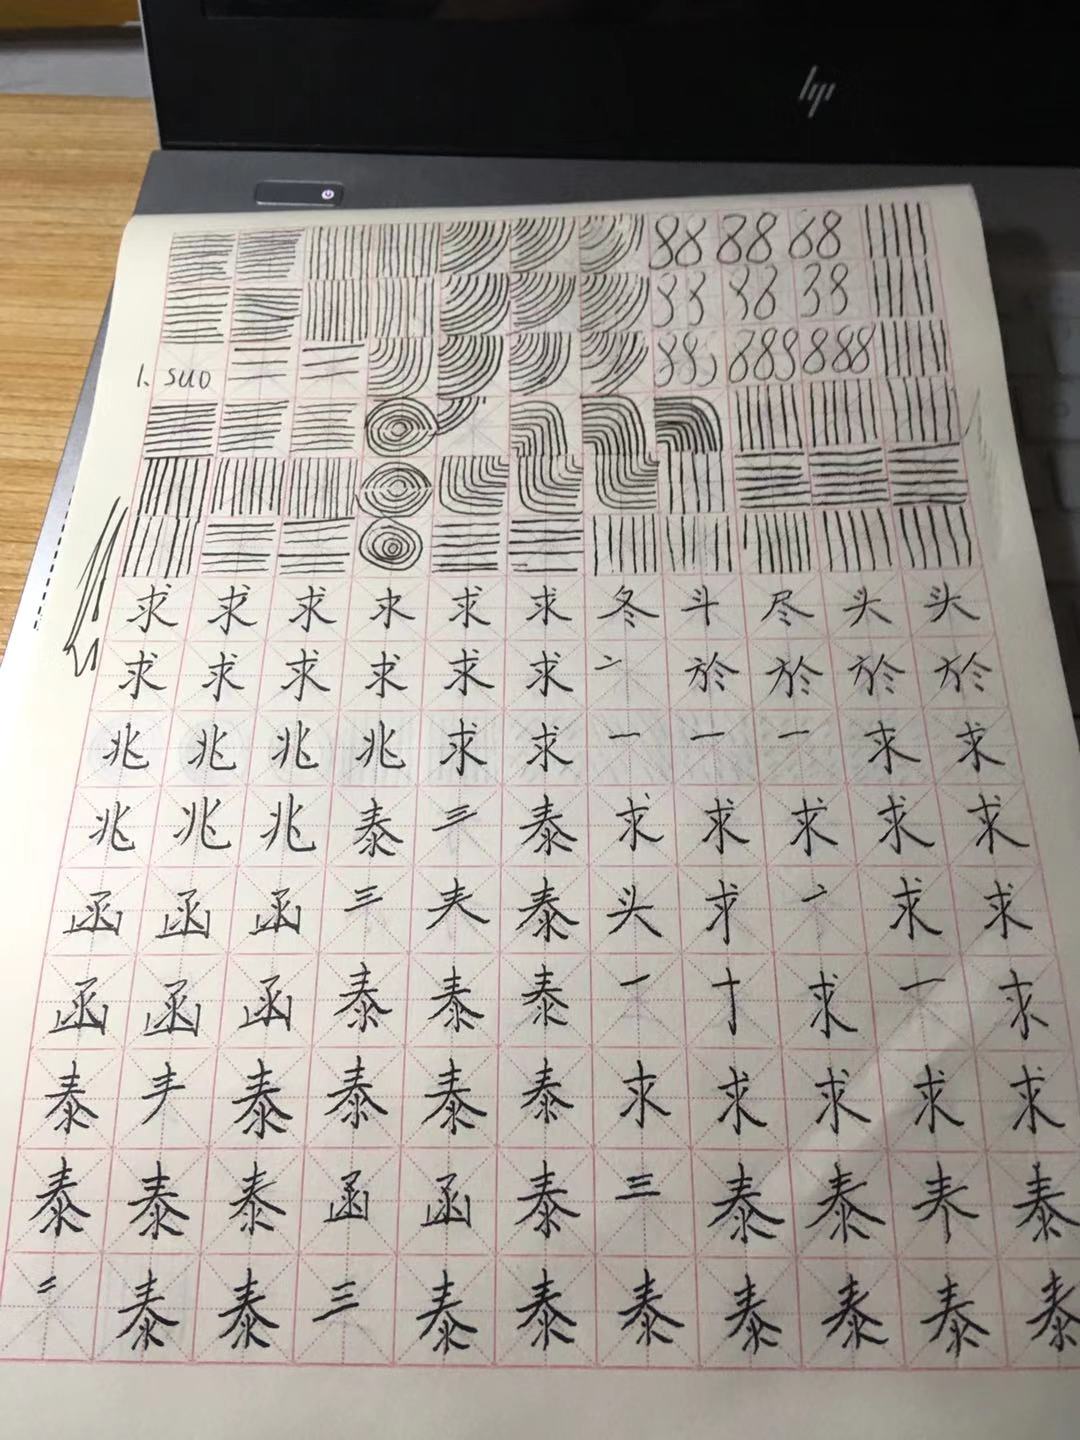 hp
88 88 68
33 38 38
1、suo 883 889 888
求 求 求 求 求 求 冬 斗 尽 头 头
求 求 求 求 求 求 於 於 於 於
兆 兆 兆 兆 求 求 一 一 一 求 求
兆 兆 兆 泰 三 泰 求 求 求 求 求
函 函 函 三 夫 泰 头 求 求
函 函 函 泰 泰 泰 一 十 求 一 求
泰 泰 泰 泰 泰 求 求 求 求 求
泰 泰 泰 函 函 泰 三 泰 泰 泰
二 泰 泰 三 泰 泰 泰 泰 泰 泰 泰